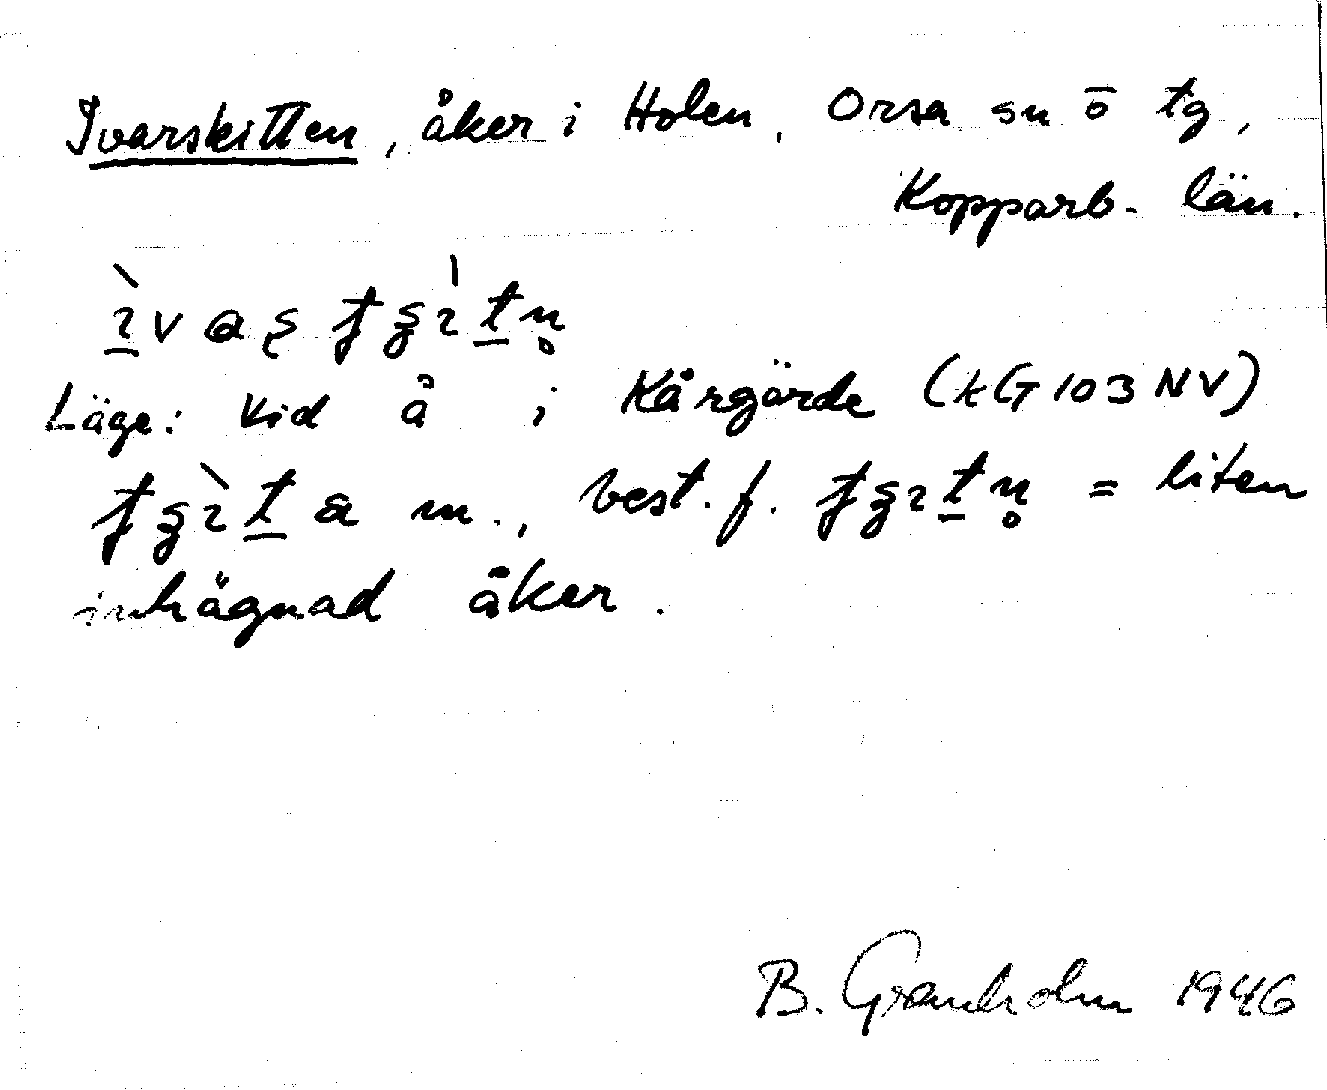 Ivarskitten, åker i Holen, Orsa sn ō tg,
Kopparb. län.
Läge: Vid å i Kårgärde (kG 103 NV)
m., best. f. = liten
inhägnad åker.
B. Granholm 1946